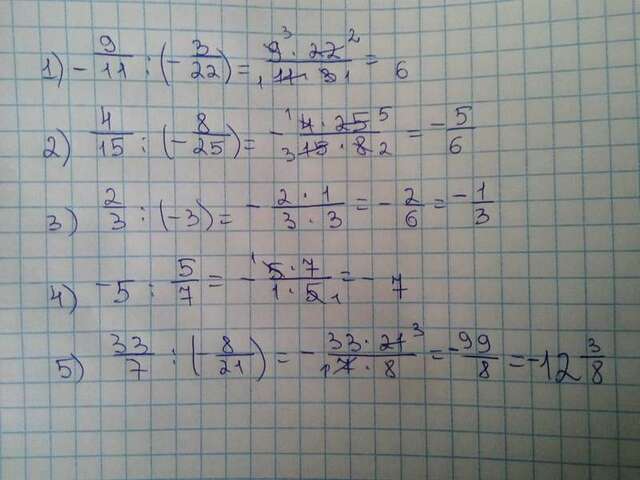 1) - 9/11 : (- 3/22) = 9³ · 22²/₁11 · 3₁ = 6
2) 4/15 : (- 8/25) = - ¹4 · 25⁵/₃15 · 8₂ = - 5/6
3) 2/3 : (-3) = - 2 · 1/3 · 3 = - 2/6 = - 1/3
4) -5 : 5/7 = - ¹5 · 7/1 · 5₁ = - 7
5) 33/7 : (- 8/21) = - 33 · 21³/₁7 · 8 = - 99/8 = -12 3/8